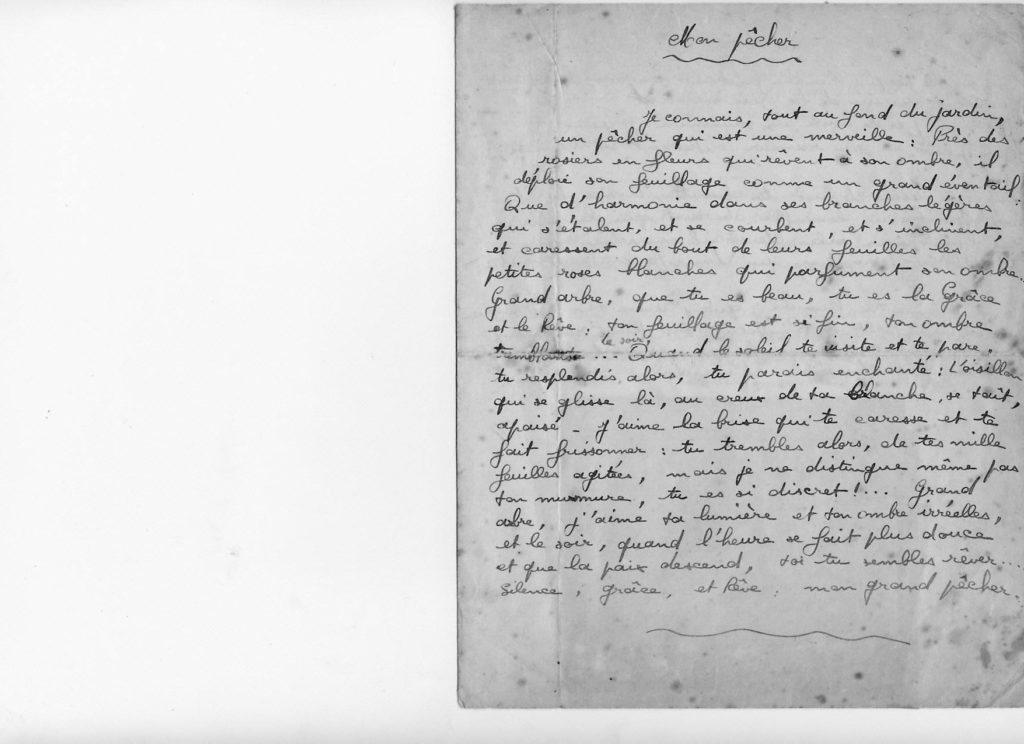 Mon pêcher
Je connais, tout au fond du jardin,
un pêcher qui est une merveille : Près des
rosiers en fleurs qui rêvent à son ombre, il
déploie son feuillage comme un grand éventail.
Que d'harmonie dans ses branches légères
qui s'étalent, et se courbent, et s'inclinent,
et caressent du bout de leurs feuilles les
petites roses blanches qui parfument son ombre.
Grand arbre, que tu es beau, tu es la Grâce
et le Rêve ; ton feuillage est si fin, ton ombre
le soir
... Quand le soleil te visite et te pare,
tu resplendis alors, tu parais enchanté : L'oisillon
qui se glisse là, au creux de ta branche, se tait,
apaisé - J'aime la brise qui te caresse et te
fait frissonner : tu trembles alors, de tes mille
feuilles agitées, mais je ne distingue même pas
ton murmure, tu es si discret !... Grand
arbre, j'aime ta lumière et ton ombre irréelles,
et le soir, quand l'heure se fait plus douce
et que la paix descend, toi tu sembles rêver...
Silence, grâce, et Rêve : mon grand pêcher.